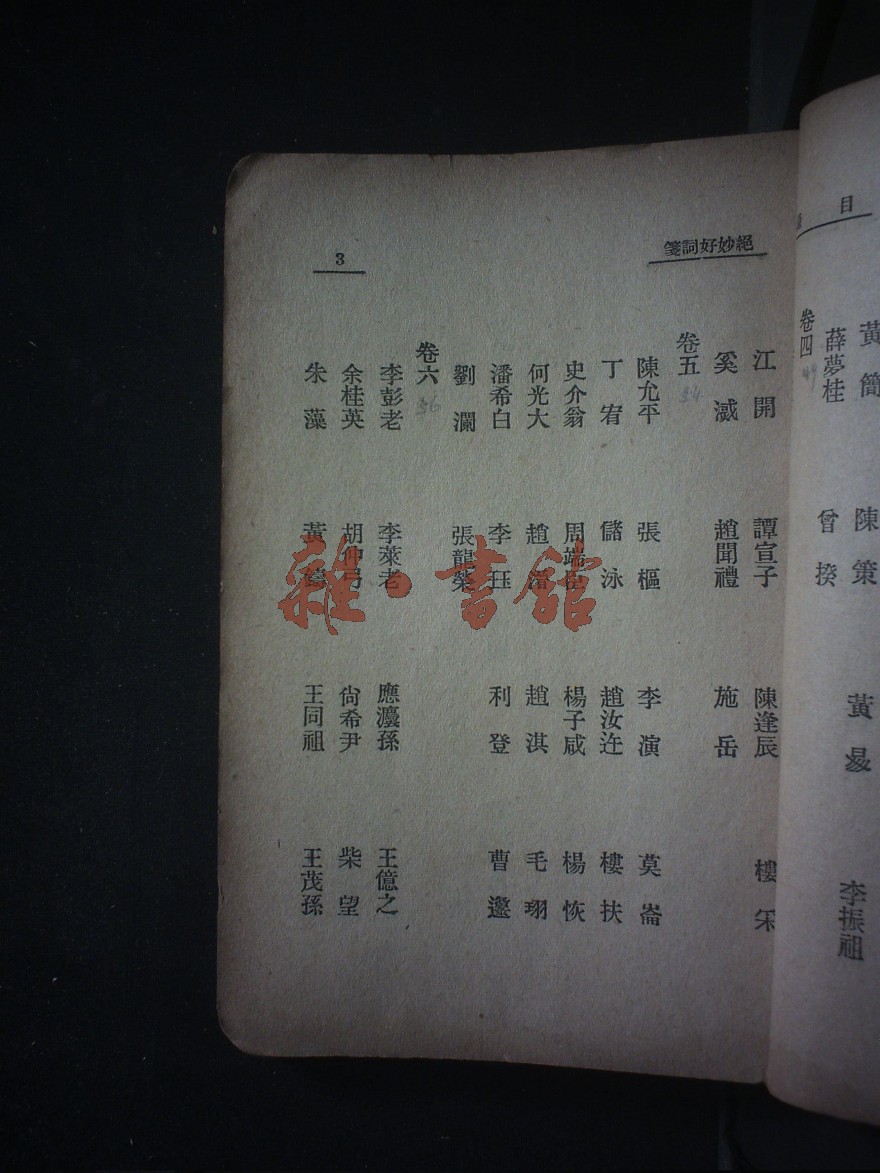 目
黃簡 陳策 黃㫤 李振祖
薛夢桂 曾揆
卷四 49
絕妙好詞箋
江開 譚宣子 陳逢辰 樓采
奚㴔 趙聞禮 施岳
卷五
陳允平 張樞 李演 莫崙
丁宥 儲泳 趙汝迕 樓扶
史介翁 周端臣 楊子咸 楊恢
何光大 趙溍 趙淇 毛珝
潘希白 李玨 利登 曹邍
劉瀾 張龍榮
卷六 56
李彭老 李萊老 應灋孫 王億之
余桂英 胡仲弓 尙希尹 柴望
朱藻 黃鑄 王同祖 王茂孫
3
雜·書館